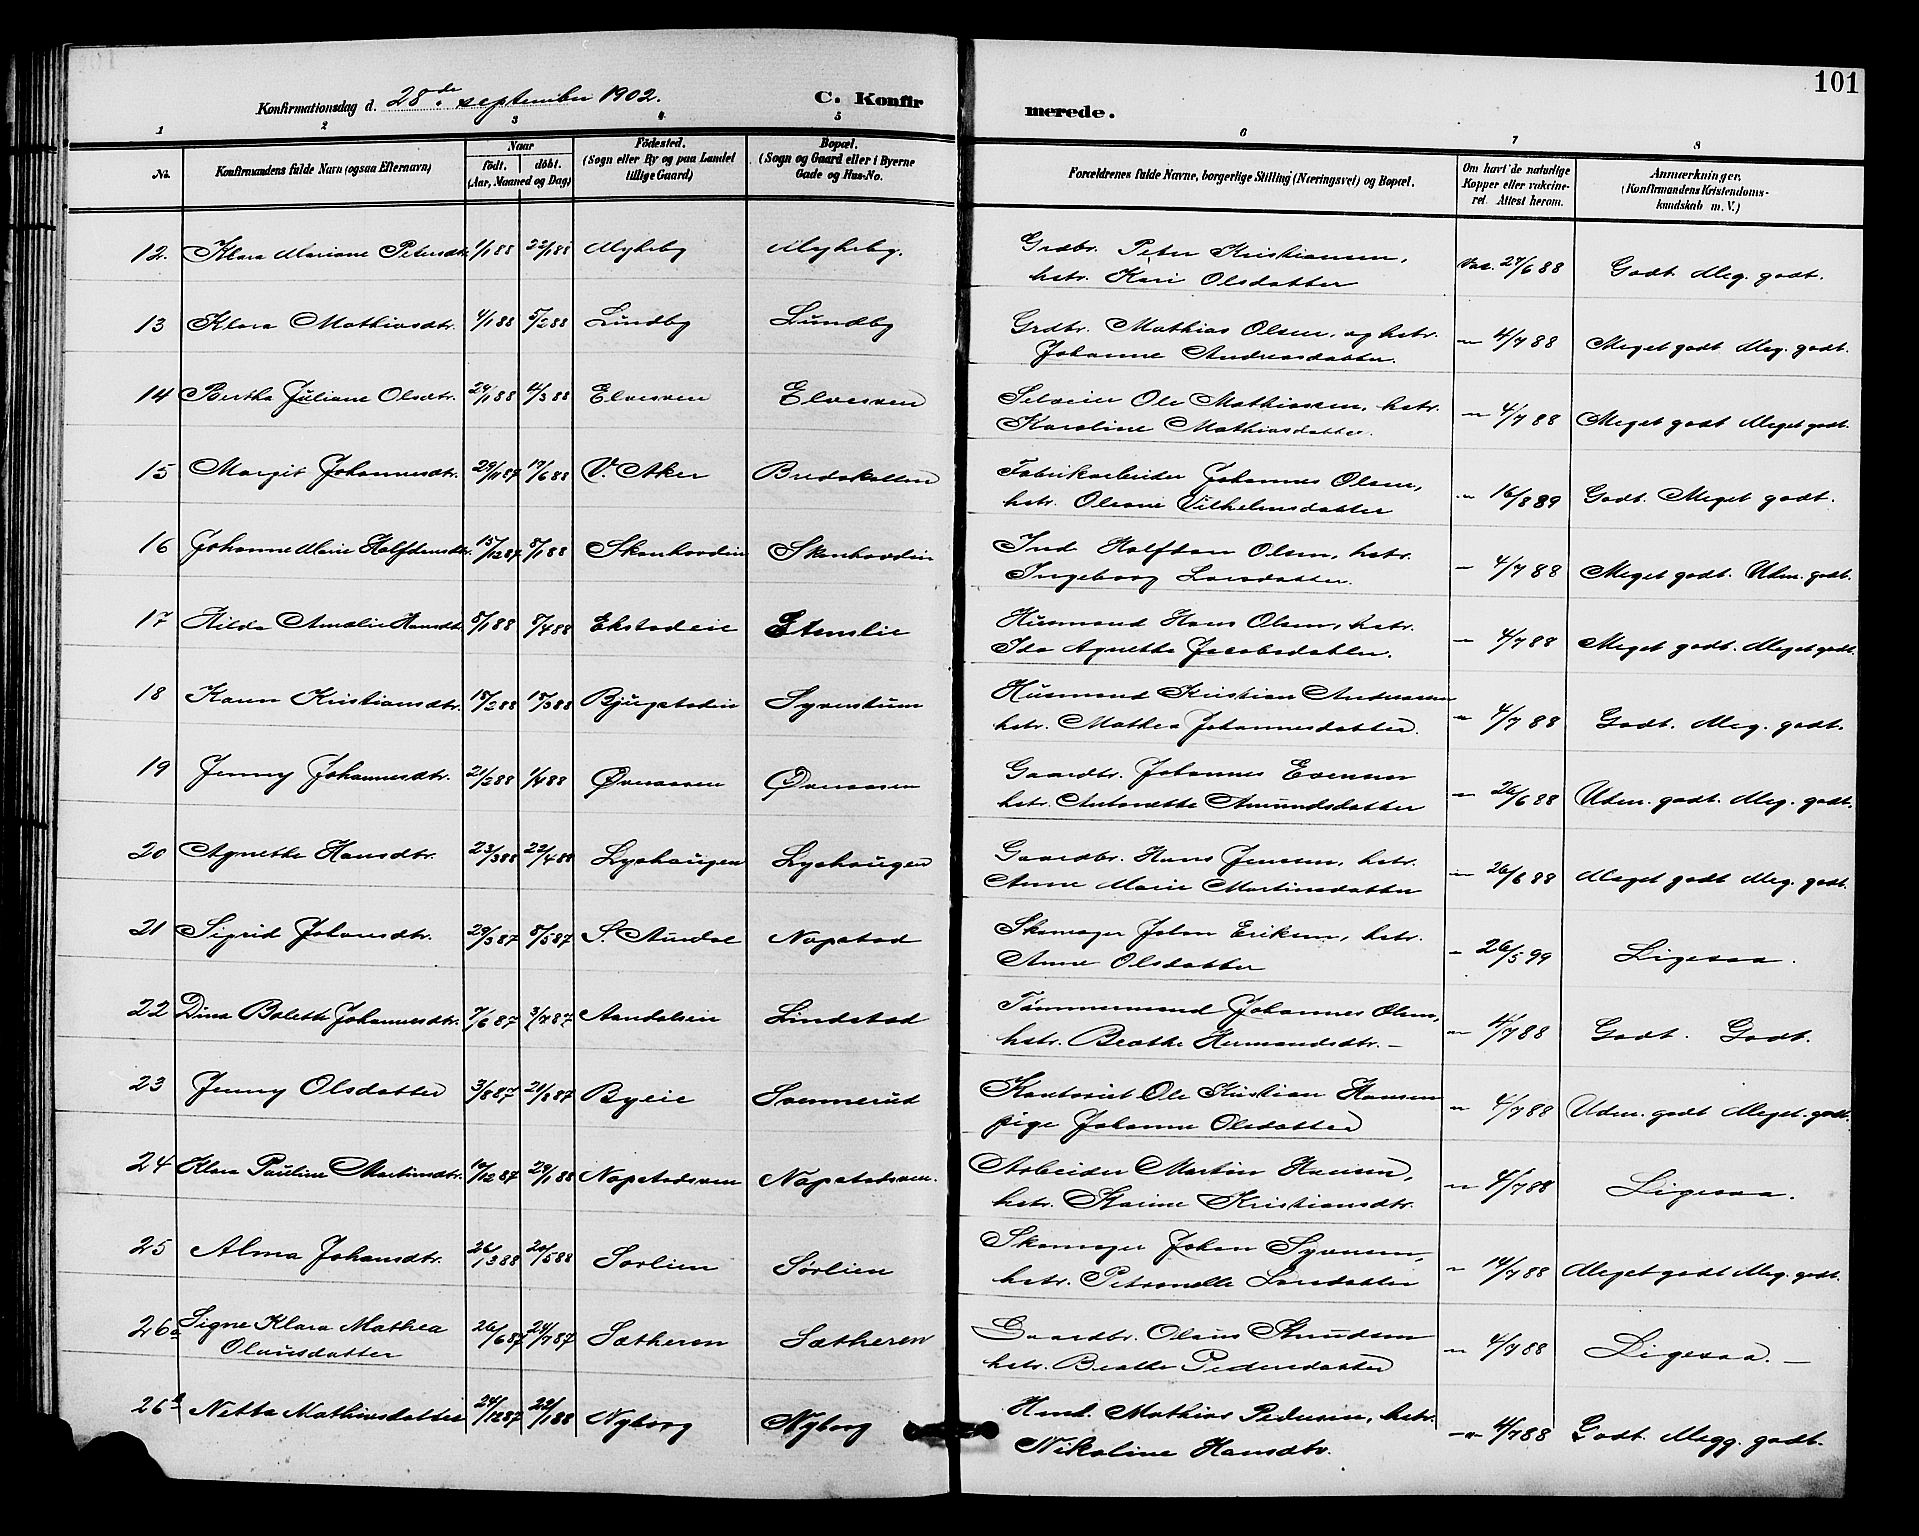 101
Konfirmationsdag d. 28de september 1902. C. Konfir merede.
1 2 3 4 5 6 7 8
No. Konfirmandens fulde Navn (ogsaa Efternavn) Naar født. døbt. (Aar, Maaned og Dag) Fødested. (Sogn eller By og paa Landet tillige Gaard) Bopæl. (Sogn og Gaard eller i Byerne Gade og Hus-No. Forældrenes fulde Navne, borgerlige Stilling (Næringsvei) og Bopæl. Om havt de naturlige Kopper eller vakcineret. Attest herom. Anmærkninger, (Konfirmandens Kristendomskundskab m. V.)
12. Klara Mariane Petersdtr. 1/1 88 22/1 88 Myhrby Myhrby. Grdbr. Peter Kristiansen, Vac. 27/6 88 Godt Meg. godt.
hstr. Kari Olsdatter
13 Klara Mathiasdtr. 4/1 88 5/2 88 Lundby Lundby Grdbr. Mathias Olsen, og hstr. -"- 4/7 88 Meget godt Meg. godt.
Johanne Andreasdatter.
14 Bertha Juliane Olsdtr. 29/1 88 4/3 88 Elvesven Elvesven Selveier Ole Mathiassen, hstr. -"- 4/7 88 Meget godt Meget godt.
Karoline Mathiasdatter.
15 Margit Johannesdtr. 29/11 87 17/6 88 V. Aker Bredskallen Fabrikarbeider Johannes Olsen, -"- 16/8 89 Godt. Meget godt.
hstr. Oleane Vilhelmsdatter
16 Johanne Marie Halfdansdtr. 15/12 87 8/1 88 Skonhovdeie Skonhovdeie Ind. Halfdan Olsen, hstr. - 4/7 88 Meget godt. Udm. godt.
Ingeborg Larsdatter.
17 Hilda Amalie Hansdt. 5/1 88 8/4 88 Ekstadeie Etenslie Husmand Hans Olsen, hstr. - 4/7 88 Meget godt. Meget godt.
Ida Agnethe Jacobsdatter.
18 Karen Kristiansdtr. 15/2 88 18/3 88 Bjugstadeie Syverstuen Husmand Kristian Andreasen -"- 4/7 88 Godt. Meg. godt.
hstr. Mathea Johannesdatter.
19 Jenny Johannesdtr. 21/2 88 1/4 88 Øveraasen Øveraasen Gaardbr. Johannes Evensen -"- 26/6 88 Udm. godt. Meg. godt.
hstr. Antonette Amundsdatter
20 Agnethe Hansdtr. 23/3 88 22/4 88 Lyshaugen Lyshaugen Gaardbr. Hans Jensen, hstr. -"- 26/6 88 Meget godt Meg. godt.
Anne Marie Martinsdatter
21 Sigrid Johansdtr. 29/3 87 8/5 87 S. Aurdal Napstad Skomager John Eriksen, hstr. - 26/5 99 Ligesaa.
Anne Olsdatter
22 Dina Bolette Johannesdtr. 7/6 87 3/7 87 Aandalseie Lindstad Tømmermand Johannes Olsen, -"- 4/7 88 Godt. Godt.
hstr. Beathe Hermandsdtr. -
23 Jenny Olsdatter 3/8 87 21/8 87 Byeie Svennerud Kontorist Ole Kristian Hansen -"- 4/7 88 Udm. godt Meget. godt.
pige Johanne Olsdatter
24 Klara Pauline Martinsdtr. 17/12 87 29/1 88 Napstadsven Napstadsven. Arbeider Martin Hansen, -"- 4/7 88 Ligesaa.
hstr. Karine Kristiansdtr.
25 Alma Johansdtr. 26/3 88 20/5 88 Sørlien Sørlien Skomager Johan Syversen, -"- 14/7 88 Meget godt Meg. godt.
hstr. Petronelle Larsdatter
26a Signe Klara Mathea 26/6 87 24/7 87 Sætheren Sætheren Gaardbr. Olaus Knudsen -"- 4/7 88 Ligesaa. -
Olausdatter hstr. Beathe Pedersdatter
26b Netta Mathiasdatter 24/12 87 22/1 88 Nyborg Nyborg Hmd. Mathias Pedersen, hstr. -"- 4/7 88 Godt. Megg. godt.
Nikoline Hansdtr.